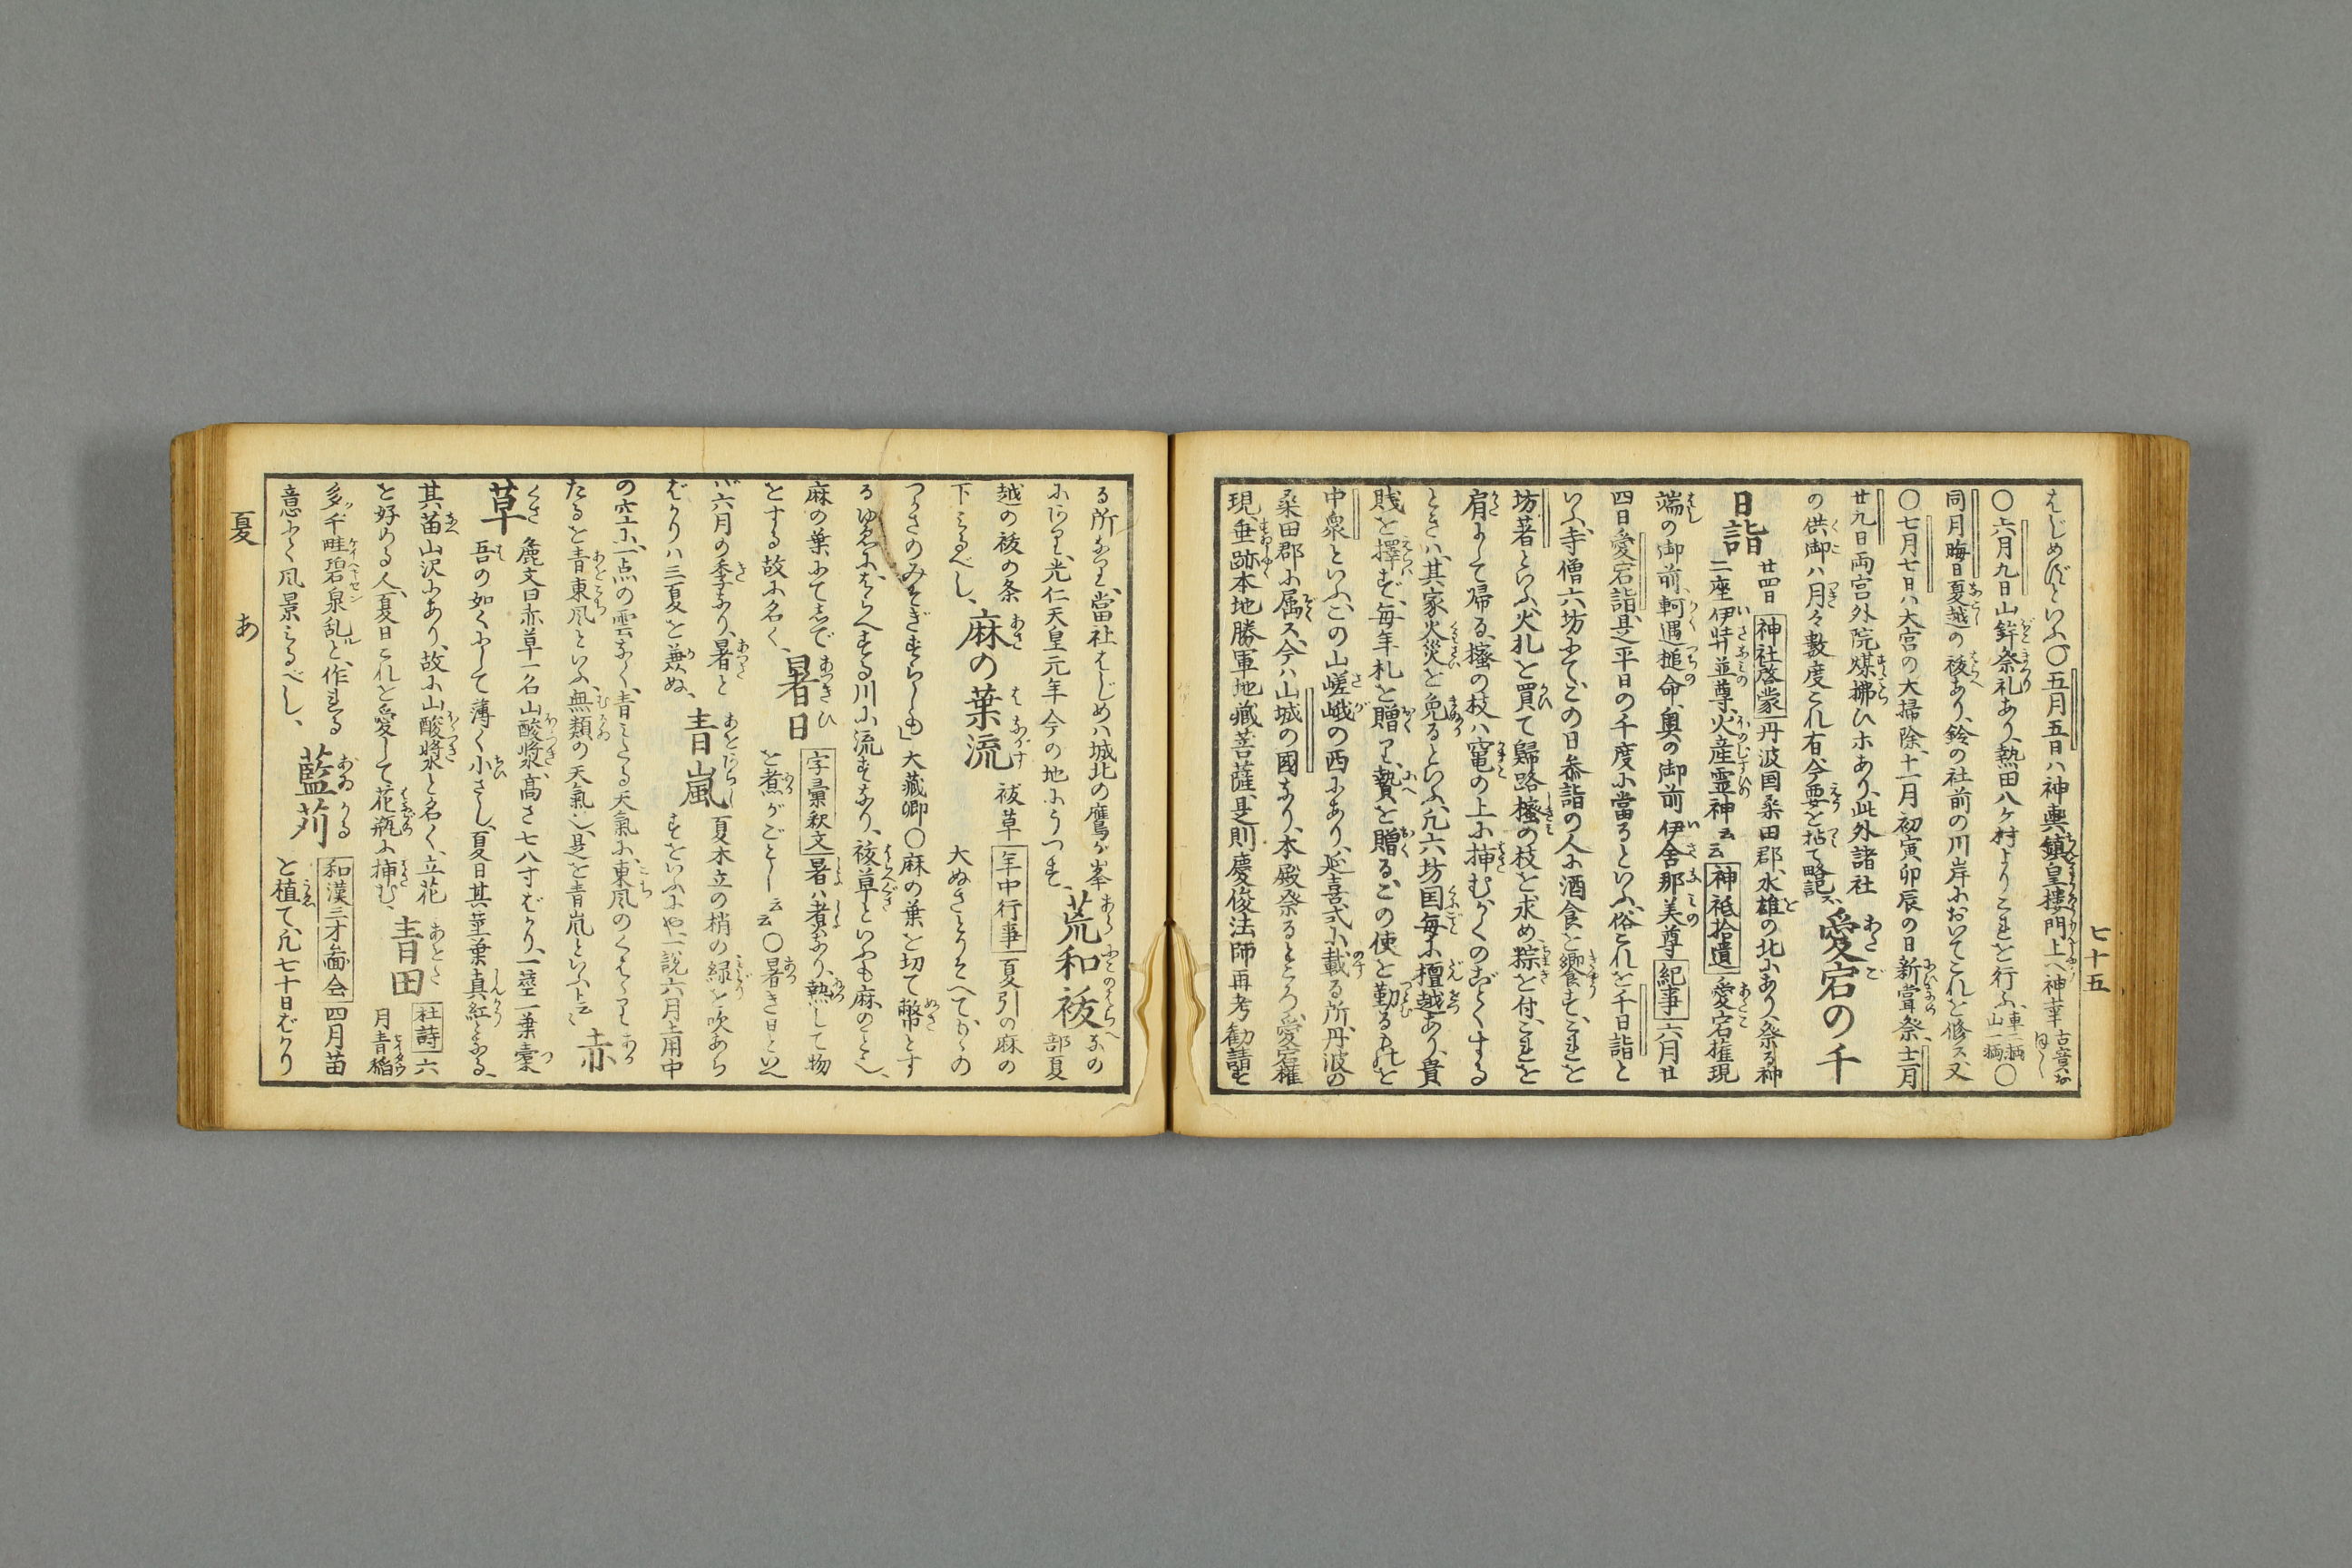 七十五
はじめげといふ、〇五月五日ハ神輿鎮皇樓門上へ神幸
〇六月九日山鉾祭礼あり、熱田八ケ村よりこれを行ふ、車二輌山一輌〇
同月晦日夏越の祓あり、鈴の社前の川岸においてこれを修ス、又
〇七月七日ハ大宮の大掃除、十一月初寅卯辰の日新甞祭、十二月
廿九日両宮外院煤拂ひホあり、此外諸社
の供御ハ月々數度これ有、今要を拈て略記ス、
愛宕の千
日詣
廿四日 神社啓蒙 丹波国桒田郡、水雄の北にあり、祭る神
二座伊弉並尊、火産霊神云云 神祇拾遺 愛宕権現
端の御前、軻遇槌命、奥の御前伊舎那美尊 紀事 六月廿
四日愛宕詣、是平日の千度に當るといふ、俗これを千日詣と
いふ、寺僧六坊にて、この日叅詣の人に酒食を饗す、これを
坊著といふ、火札を買て歸路樒の枝を求め、粽を付、これを
肩にして帰る、樒の枝ハ竃の上に挿む、かくのごとくする
ときハ、其家火災を免るといふ、凡六坊国毎に檀越あり、貴
賎を擇ばず、毎年札を贈り、贄を贈る、この使を勤るものを
中泉といふ、この山嵯峨の西にあり、延喜式に載る所、丹波の
桒田郡に属ス、今ハ山城の國なり、本殿祭るところ、愛宕権
現、垂跡本地勝軍地藏菩薩、是則慶俊法師再考勧請せ
る所なり、當社はじめハ城北の鷹ヶ峯
にあり、光仁天皇元年今の地にうつす、
荒和祓
なの部夏
越の祓の条
下みるべし、
麻の葉流
祓草 年中行事 夏引の麻の
大ぬさとりそへてかゝの
つかさのみそぎすらしも」大藏卿〇麻の葉を切て幣とす
るゆゑにはらへする川に流すなり、祓草といふも麻のこと也、
麻の葉にてしで
とする故に名く、
暑日
字彙釈文 暑ハ煮なり、熱して物
を煮がごとし云云〇暑き日といへ
バ六月の季なり、暑と
ばかりハ三夏を兼ぬ、
青嵐
夏木立の梢の緑を吹あら
すをいふにや、一説六月土用中
の空に、一点の雲なく、青みたる天氣に、東風のくはゝり
たるを青東風といふ、無類の天氣也、是を青嵐といふト云云
赤
草
麁文曰赤草一名山酸漿、高さ七八寸ばかり、一莖一葉橐
吾の如くにして薄く小さし、夏日其莖葉真紅となる、
其苗山沢にあり、故に山酸漿と名く、立花
を好める人、夏日これを愛して花瓶に挿む、
青田
社詩 六
月青稲
多シ千畦碧泉乱ルと、作れる
意にて風景みるべし、
藍苅
和漢三才圖会 四月苗
を植て、凡七十日ばかり
夏
あ